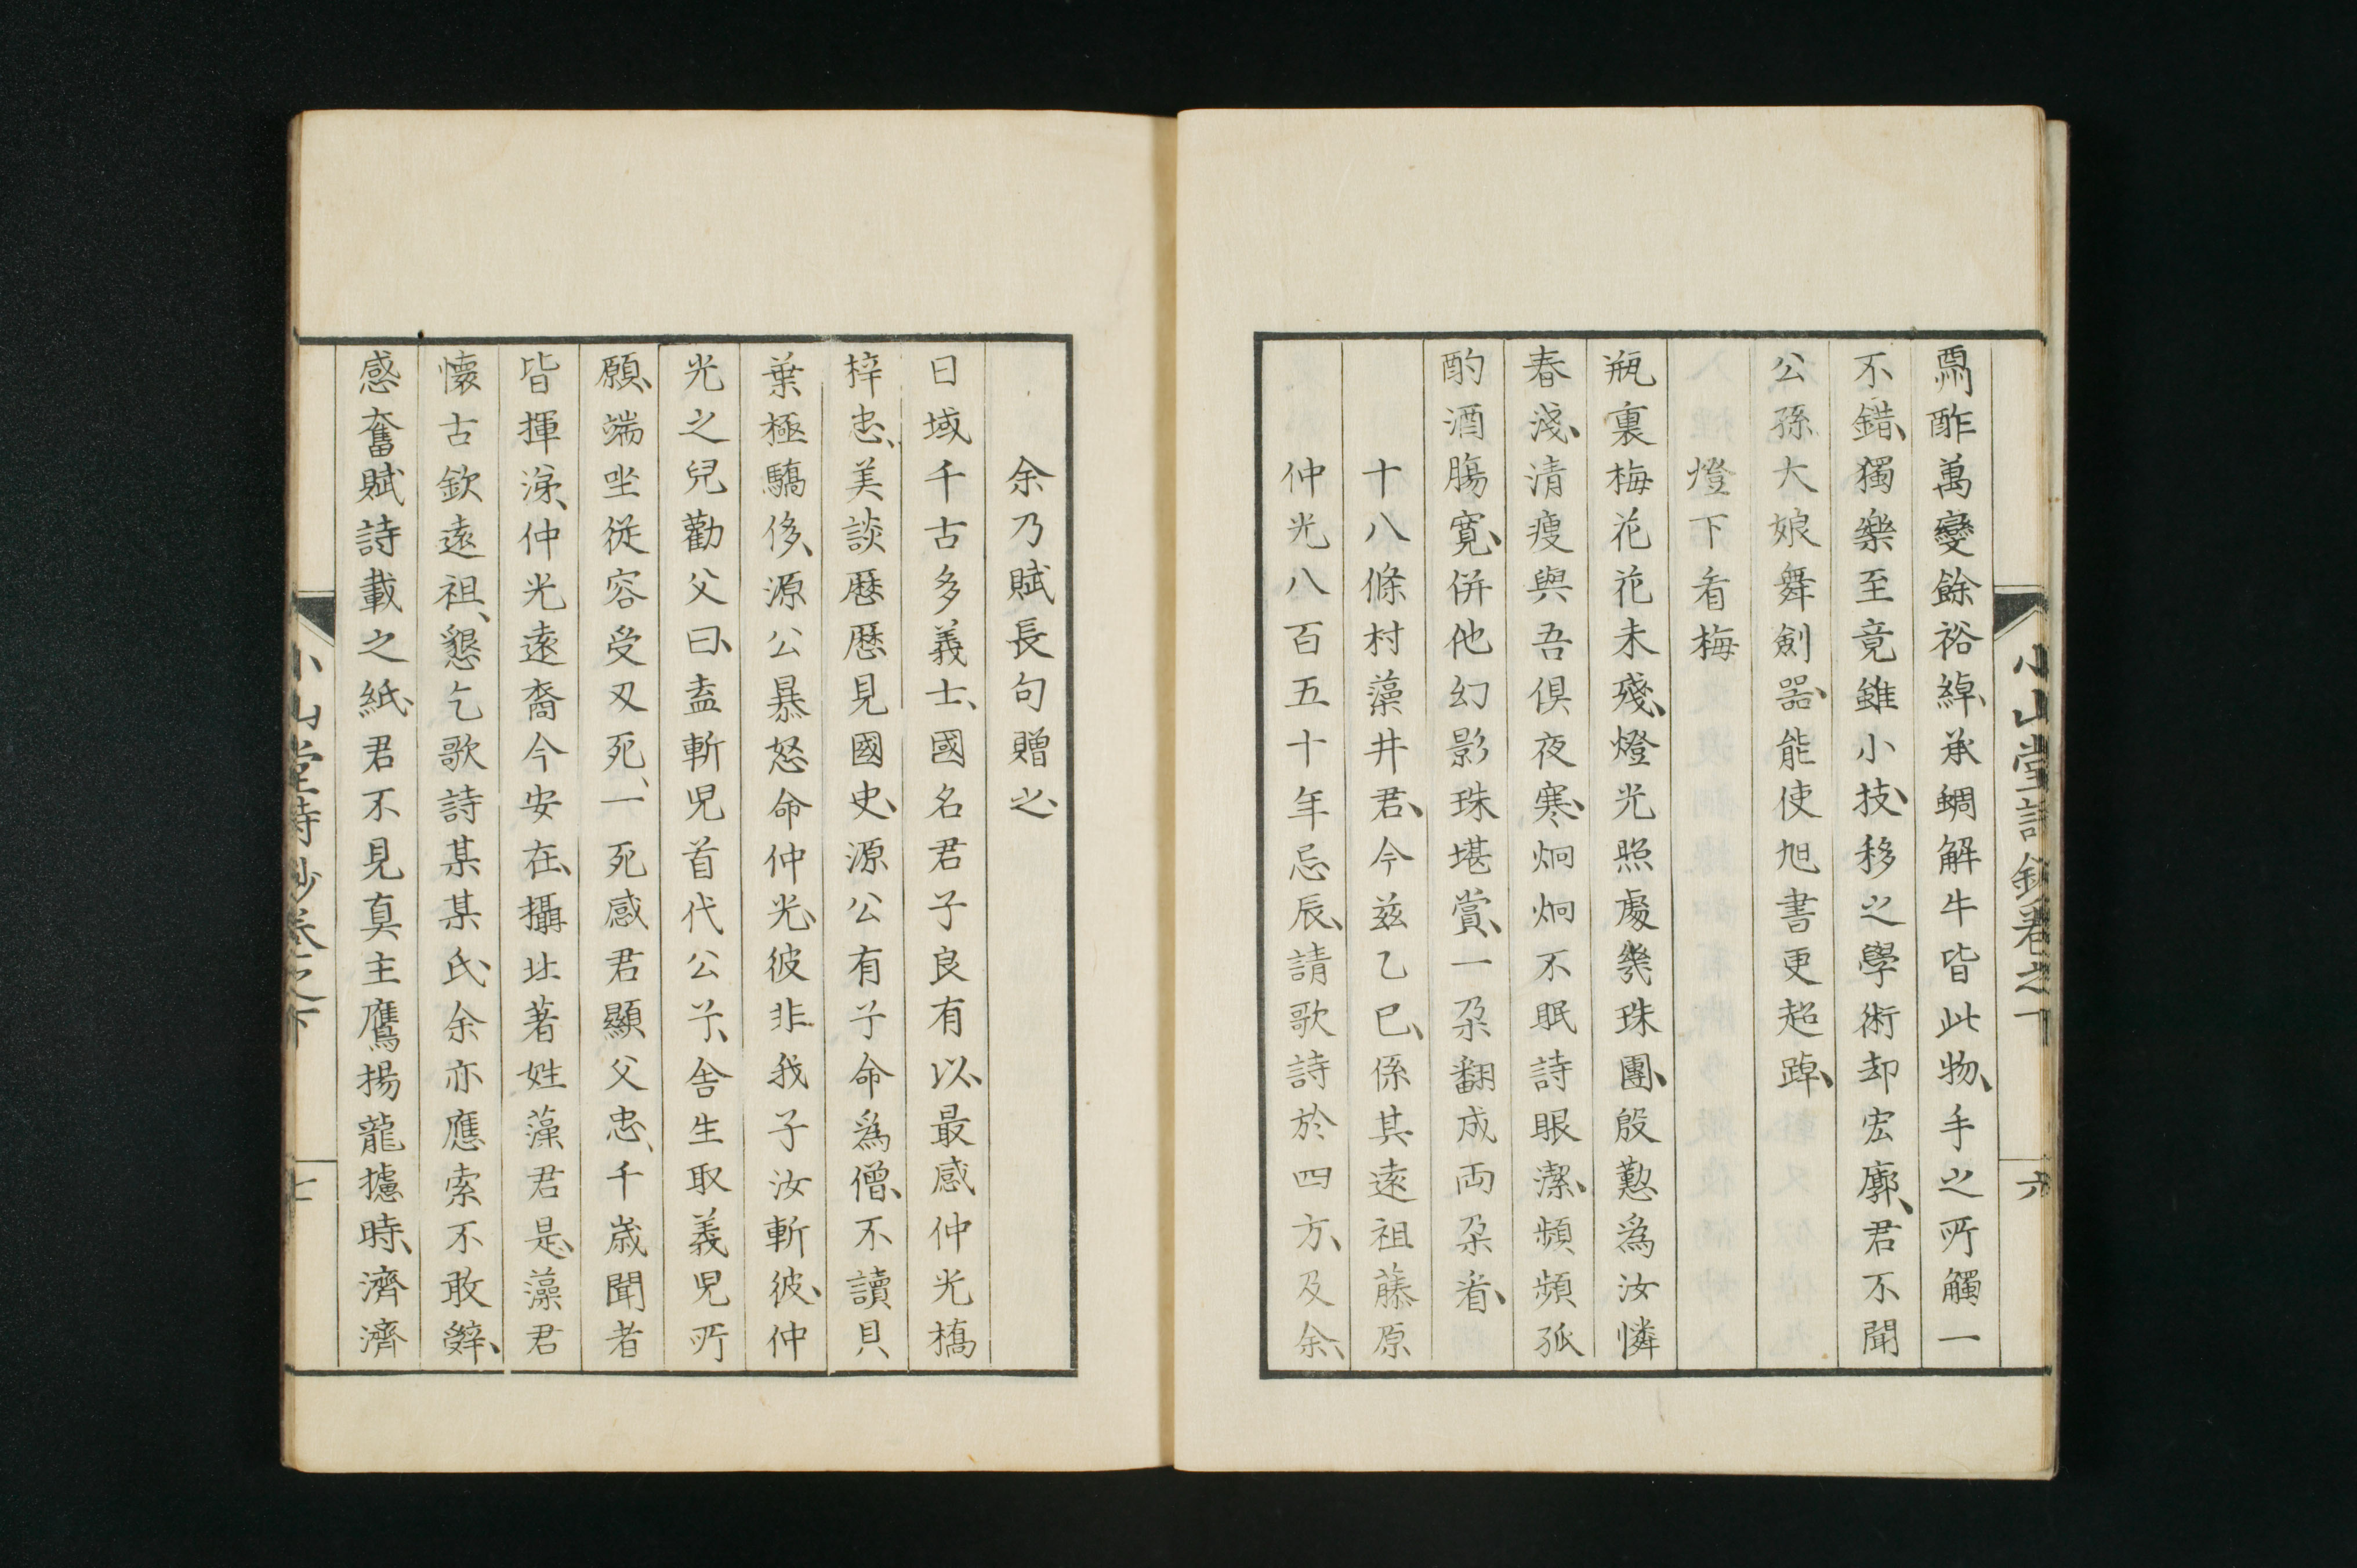 小山堂詩鈔卷之下
六
酬酢萬變餘裕綽、承蜩解牛皆此物、手之所觸一
不錯、獨樂至竟雖小技、移之學術却宏廓、君不聞
公孫大娘舞劍器、能使旭書更超踔、
燈下看梅
瓶裏梅花花未殘、燈光照處幾珠團、殷懃爲汝憐
春淺、清瘦與吾俱夜寒、炯炯不眠詩眼潔、頻頻孤
酌酒腸寬、併他幻影珠堪賞、一朶翻成両朶看、
十八條村藻井君、今茲乙巳、係其遠祖藤原
仲光八百五十年忌辰、請歌詩於四方、及余、
余乃賦長句贈之、
日域千古多義士、國名君子良有以、最感仲光橋
梓忠、美談歴歴見國史、源公有子命爲僧、不讀貝
葉極驕侈、源公暴怒命仲光、彼非我子汝斬彼、仲
光之兒勸父曰、盍斬児首代公子、舎生取義児所
願、端坐従容受刃死、一死感君顯父忠、千歳聞者
皆揮涕、仲光遠裔今安在、攝北著姓藻君是、藻君
懷古欽遠祖、懇乞歌詩某某氏、余亦應索不敢辭、
感奮賦詩載之紙、君不見真主鷹揚龍攄時、濟濟
小山堂詩鈔卷之下
七